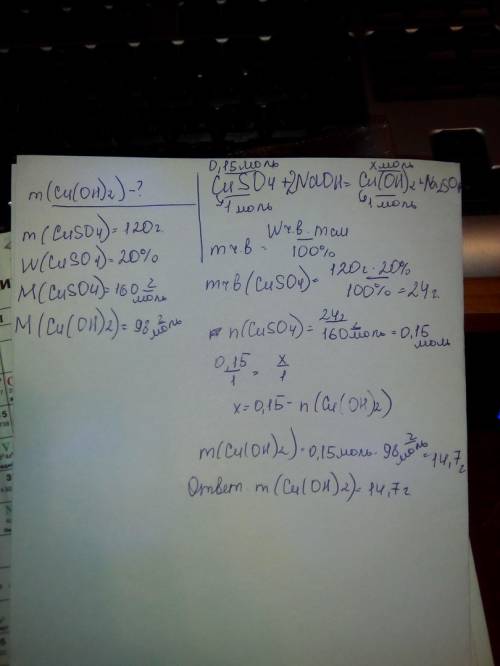 m(Cu(OH)2)-?
m(CuSO4)=120г.
W(CuSO4)=20%
M(CuSO4)=160 г/моль
M(Cu(OH)2)=98 г/моль
0,15моль x моль
CuSO4+2NaOH=Cu(OH)2+Na2SO4
1моль 1моль
mч.в = Wч.в·mсм / 100%
mч.в(CuSO4)= 120г·20% / 100% =24г.
n(CuSO4)= 24г / 160 г/моль =0,15 моль
0,15/1 = x/1
x=0,15-n(Cu(OH)2)
m(Cu(OH)2)=0,15моль·98 г/моль=14,7г
Ответ. m(Cu(OH)2)=14,7г